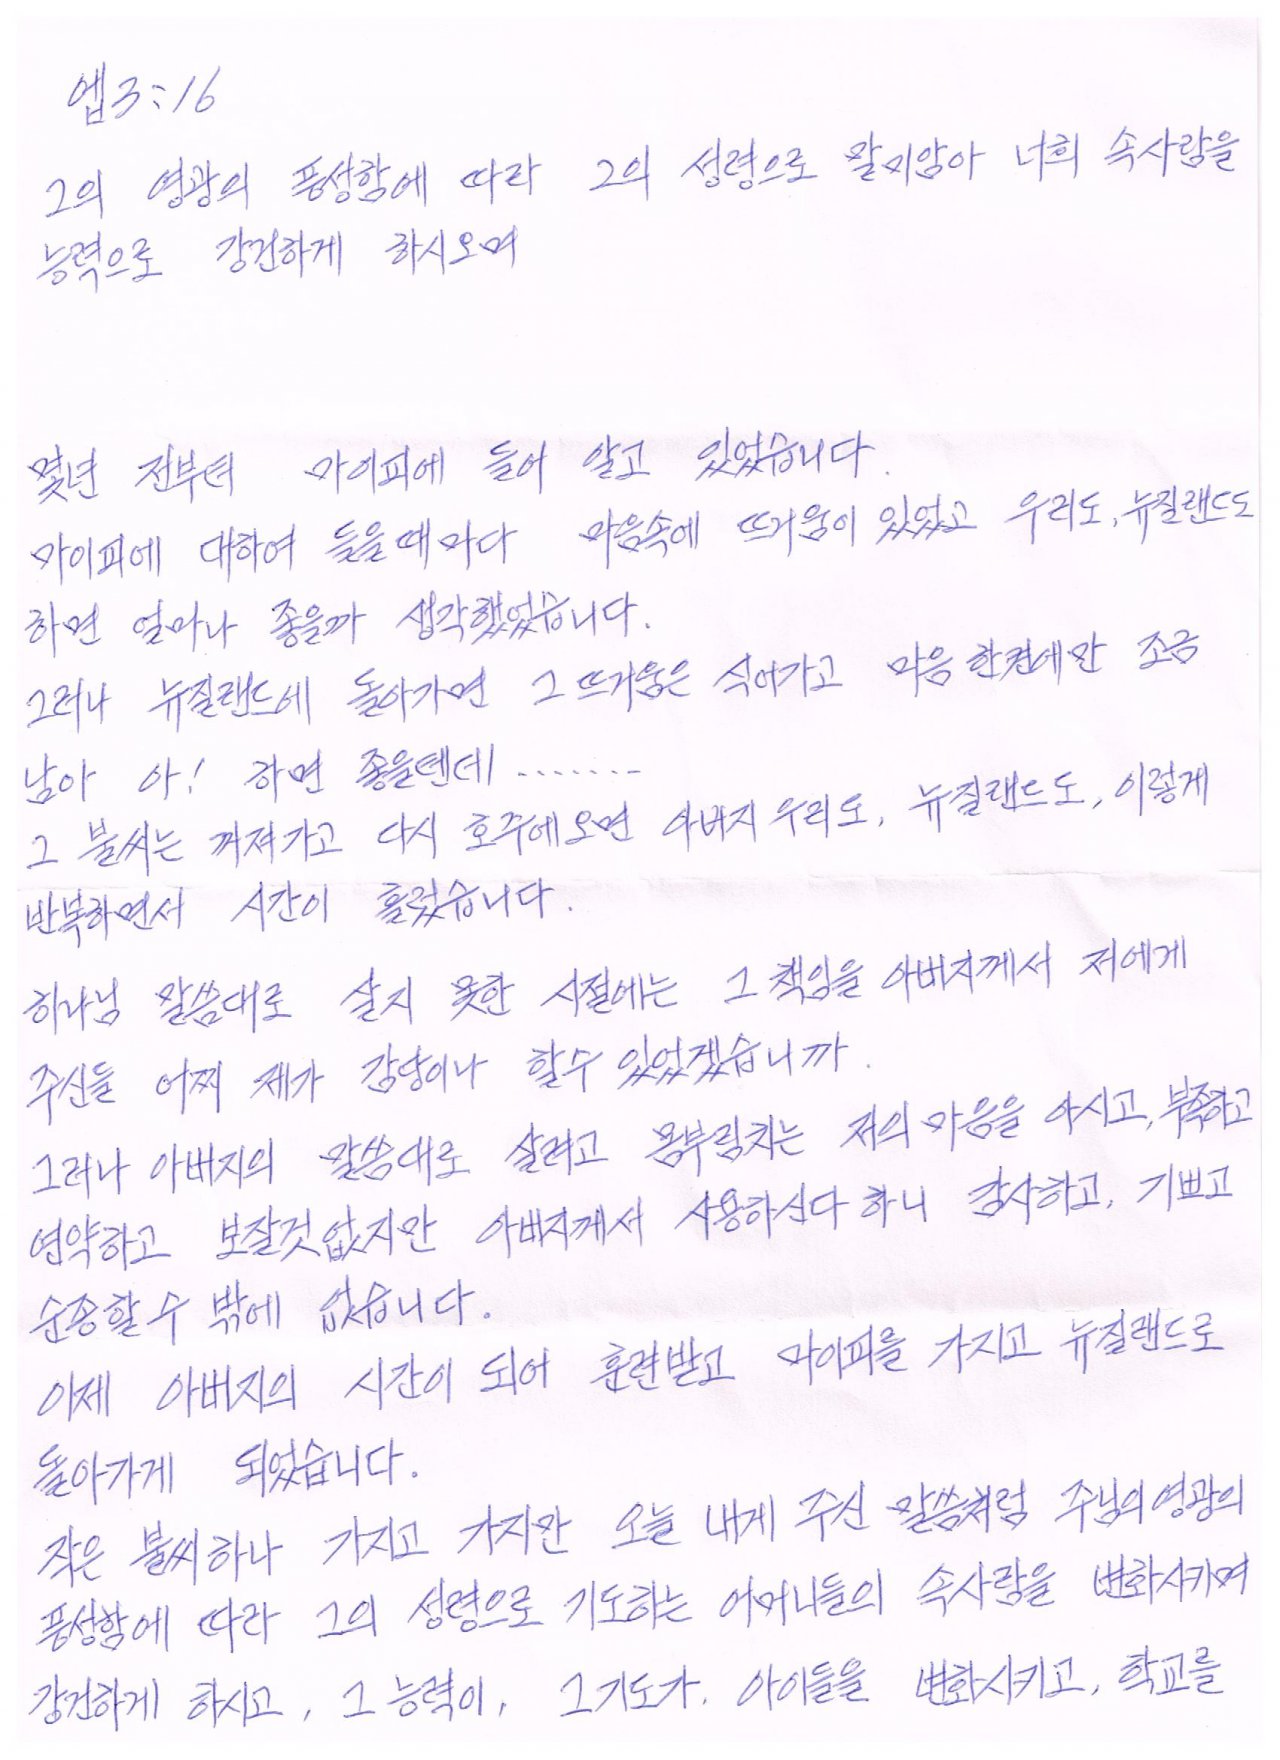 엡3:16
그의 영광의 풍성함에 따라 그의 성령으로 말미암아 너희 속사람을
능력으로 강건하게 하시오며
몇년 전부터 마이피에 들어 알고 있었습니다.
마이피에 대하여 들을때마다 마음속에 뜨거움이 있었고 우리도, 뉴질랜드도
하면 얼마나 좋을까 생각했었습니다.
그러나 뉴질랜드에 돌아가면 그 뜨거움은 식어가고 마음 한켠에만 조금
남아 아! 하면 좋을텐데 .......
그 불씨는 꺼져가고 다시 호주에오면 아버지 우리도, 뉴질랜드도, 이렇게
반복하면서 시간이 흘렀습니다.
하나님 말씀대로 살지 못한 시절에는 그 책임을 아버지께서 저에게
주신들 어찌 제가 감당이나 할수 있었겠습니까.
그러나 아버지의 말씀대로 살려고 몸부림치는 저의 마음을 아시고, 부족하고
연약하고 보잘것없지만 아버지께서 사용하신다 하니 감사하고, 기쁘고
순종할수 밖에 없습니다.
이제 아버지의 시간이 되어 훈련받고 마이피를 가지고 뉴질랜드로
돌아가게 되었습니다.
작은 불씨하나 가지고 가지만 오늘 내게 주신 말씀처럼 주님의영광의
풍성함에 따라 그의 성령으로 기도하는 어머니들의 속사람을 변화시키며
강건하게 하시고, 그 능력이, 그기도가, 아이들을 변화시키고, 학교를